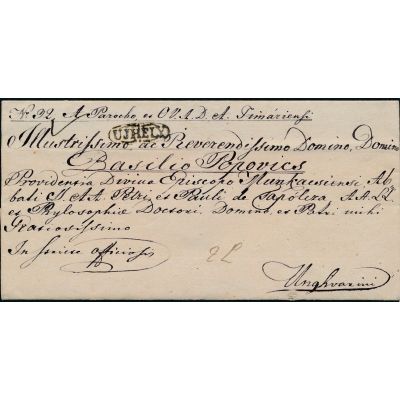 Nr. 92. A Parocho, es O V. A. D. A. Timáriensi
UJHELY
Illustrissimo ac Reverendissimo Domino, Domino
Basilio Popovics
Providentia Divina Episcopo Munkacsiensi, Ab
bati S. A. A. Petri, et Pauli de Tapolcza, A. A. L. L.
et Phylosophiæ Doctori. Domino, et Patri mihi
Gratiosissimo
In serie officiosis
Unghvarini